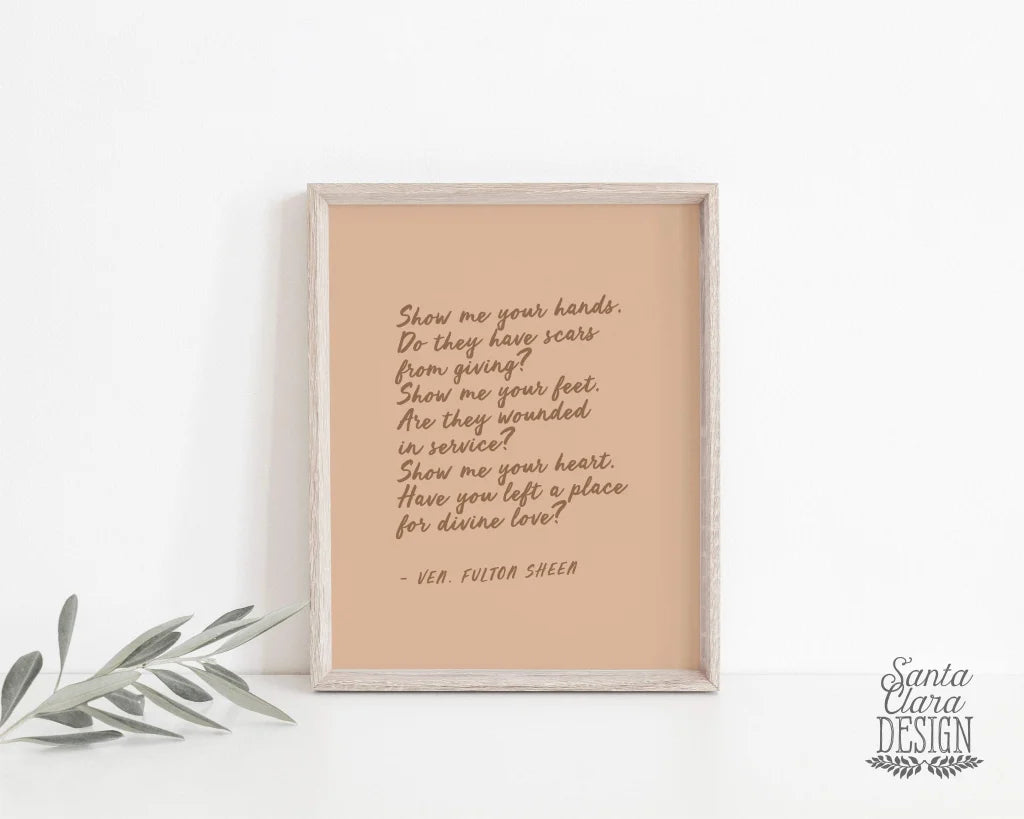 Show me your hands.
Do they have scars
from giving?
Show me your feet.
Are they wounded
in service?
Show me your heart.
Have you left a place
for divine love?
- VEN. FULTON SHEEN
Santa
Clara
DESIGN